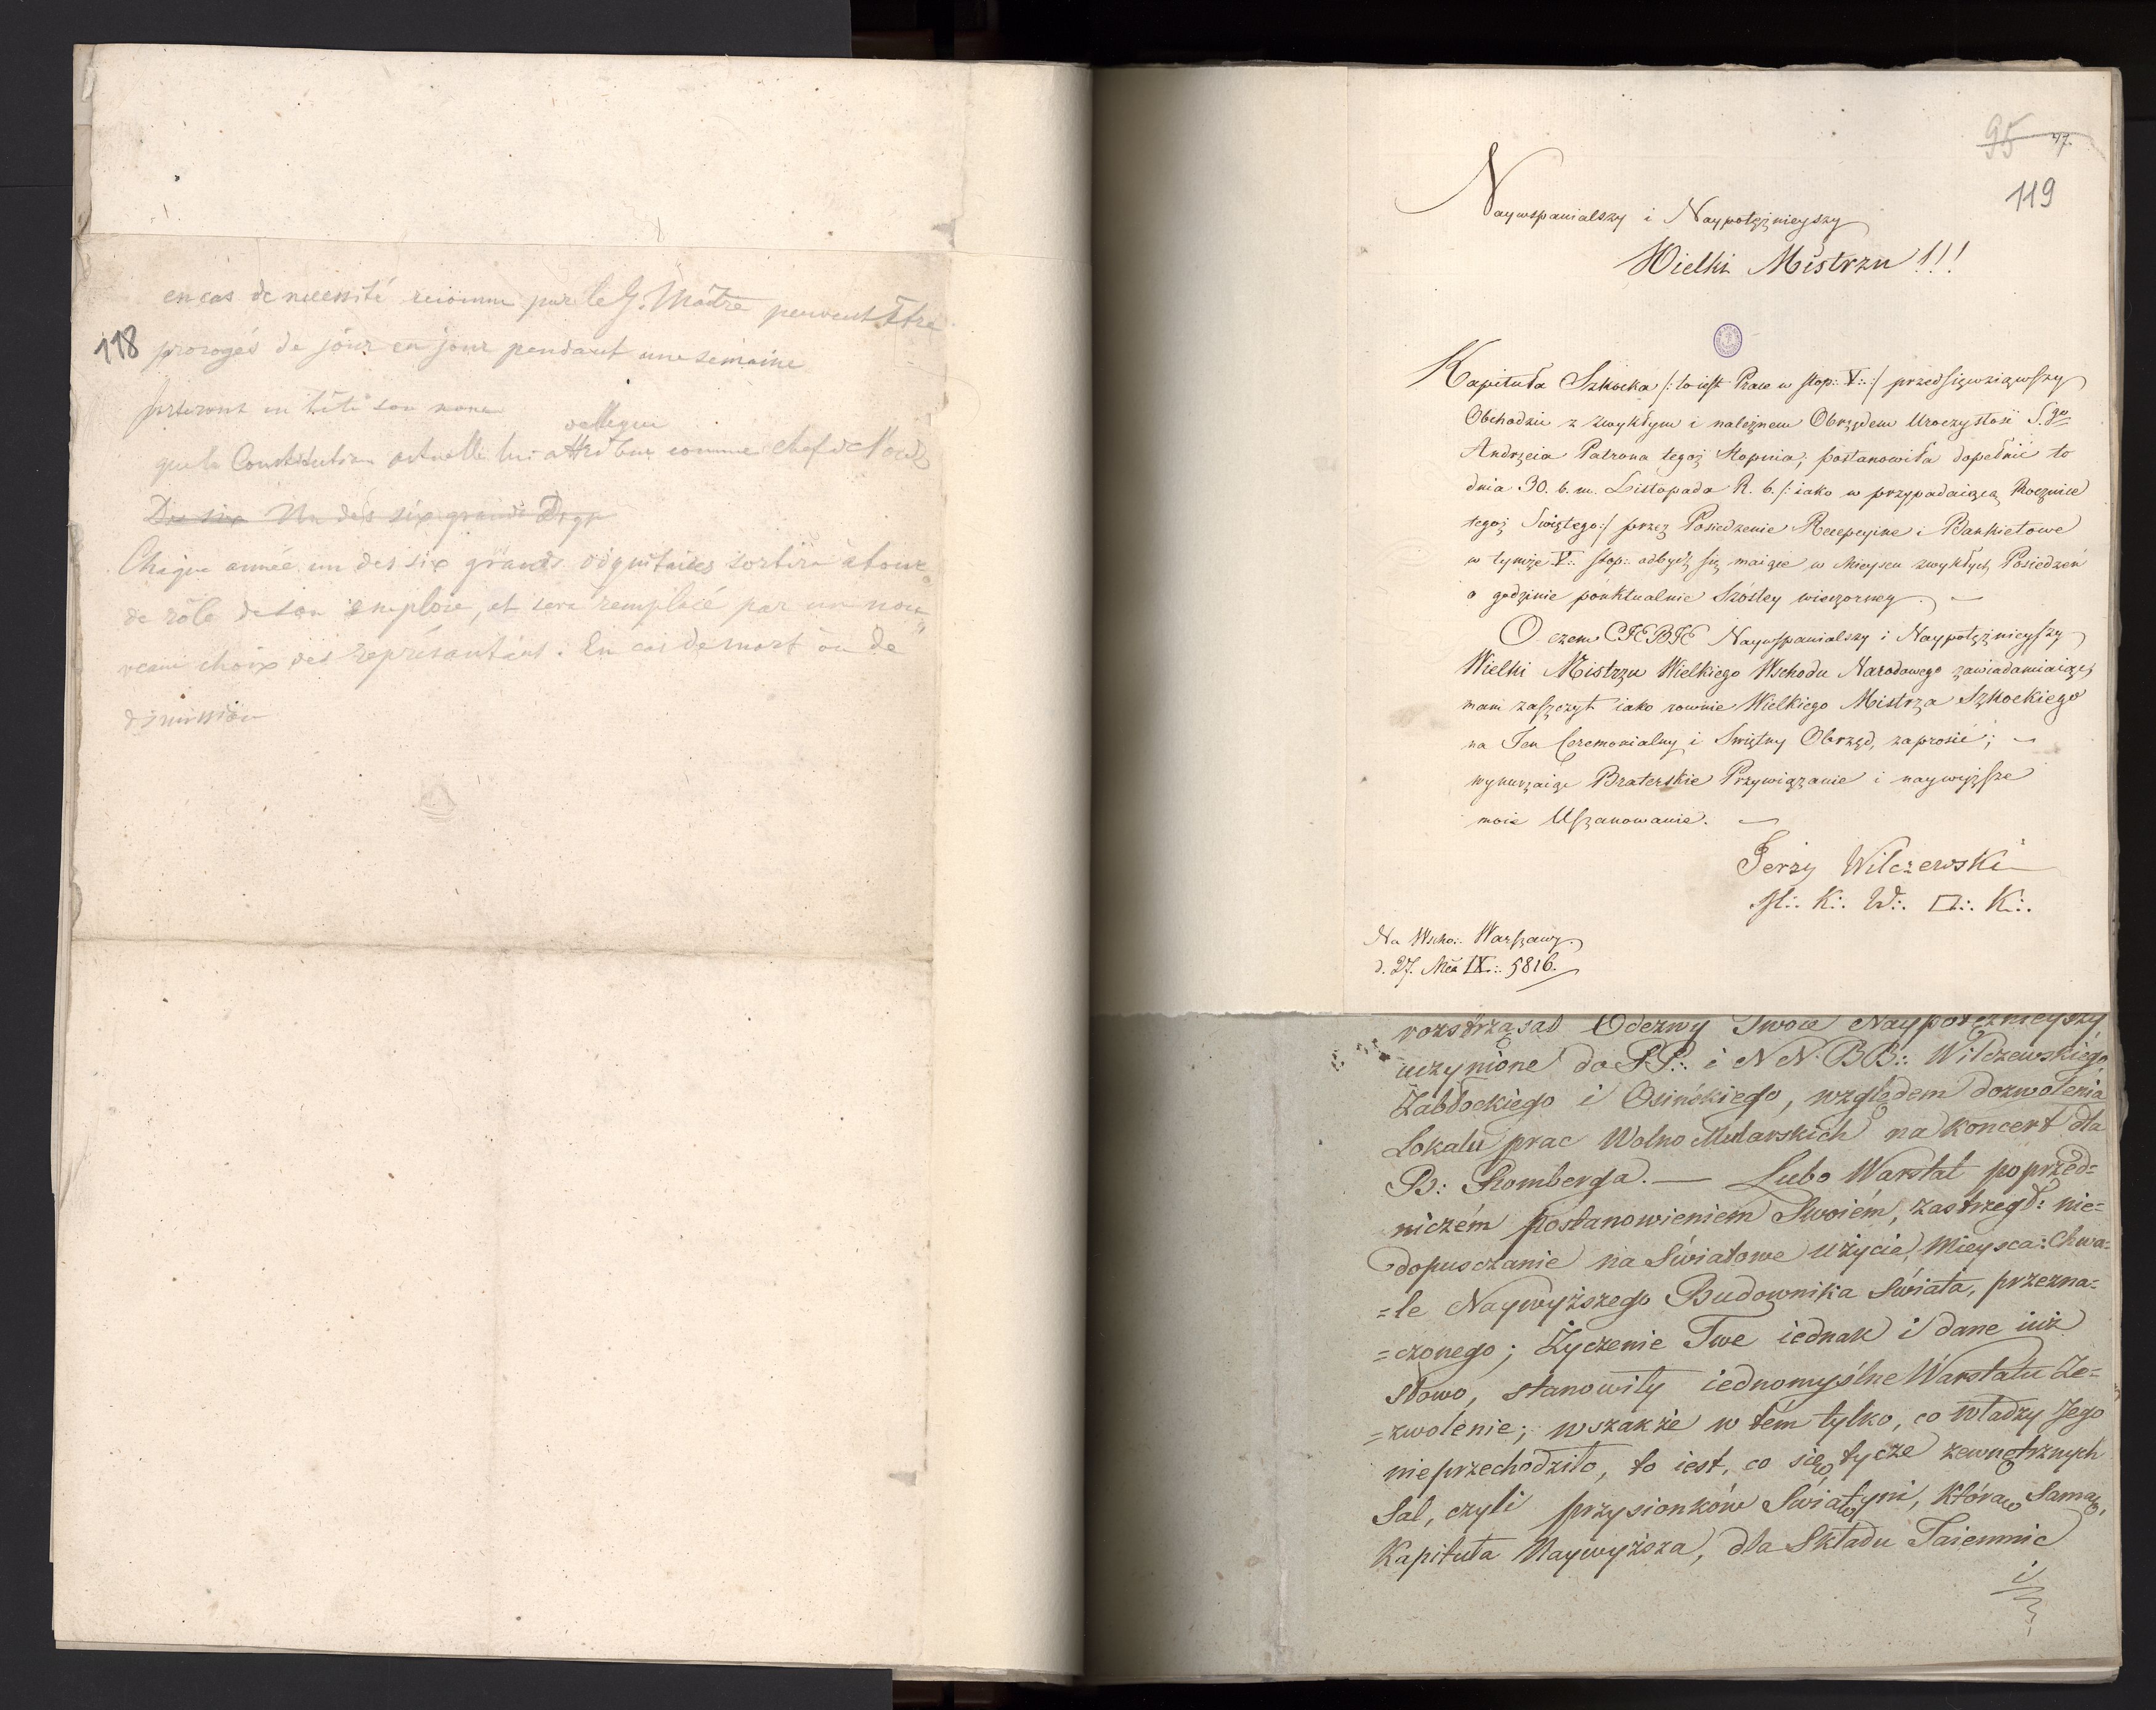 118
en cas de necessité reconnu par le G. Maître peuvent Etre
prorogés de jour en jour pendant une semaine
porterons en tête son nom
telle que
que la Constitution actuelle lui attribue comme chef de l'ord
Des six Un des six grands Dign
Chaque année un des six grands dignitaires sortira à tour
de rôle de son emploie, et sera remplacé par un nou=
veau choix des représantans. En cas de mort ou de
démission
95 47.
119
Naywspanialszy i Naypotężnieyszy
Wielki Mistrzu !!!
Kapituła Szkocka /: to iest Prace w stop: V:. :/ przedsięwziąwszy
Obchodzić z zwykłym i należnem Obrzędem Uroczystość S.go
Andrzeia Patrona tegoż Stopnia, postanowiła dopełnić to
dnia 30. b. m. Listopada R. b. /: iako w przypadaiącą Rocznicę
tegoż Świętego :/ przez Posiedzenie Recepcyine i Bankietowe
w tymże V:. stop: odbydź się maiące w Mieyscu zwykłych Posiedzeń
o godzinie pónktualnie Szóstey wieczorney. —
O czem CIEBIE Naywspanialszy i Naypotężnieyszy
Wielki Mistrzu Wielkiego Wschodu Narodowego zawiadamiaiąc,
mam zaszczyt iako rownie Wielkiego Mistrza Szkockiego
na Ten Ceremonialny i Świętny Obrząd, zaprosić; —
wynurzaiąc Braterskie Przywiązanie i naywyższe
moie Uszanowanie. —
Jerzy Wilczewski
M:. K:. W:. □:. K:.
Na Wscho:. Warszawy.
d. 27. Mca IX:. 5816.
rozstrząsał Odezwy Twoie Naypotężnieyszy
uczynione do PP:. i NN. BB:. Wilczewskiego,
Zabłockiego i Osińskiego, względem dozwolenia
Lokalu prac Wolno Mularskich na koncert dla
B: Romberga. — Lubo Warstat poprzed=
niczém postanowieniem Swoiém, zastrzegł: nie=
dopusczanie na Światowe użycie, Mieysca: Chwa=
=le Naywyższego Budownika Świata, przezna=
=czonego; Życzenie Twe iednak i dane iuż
słowo, stanowiły iednomyślne Warstatu Ze=
=zwolenie; wszakże w tém tylko, co władzy Jego
nieprzechodziło, to iest, co się tycze zewnętrznych
Sal, czyli przysionków Świątyni, którą Sama,
Kapituła Naywyższa, dla Składu Taiemnic
i